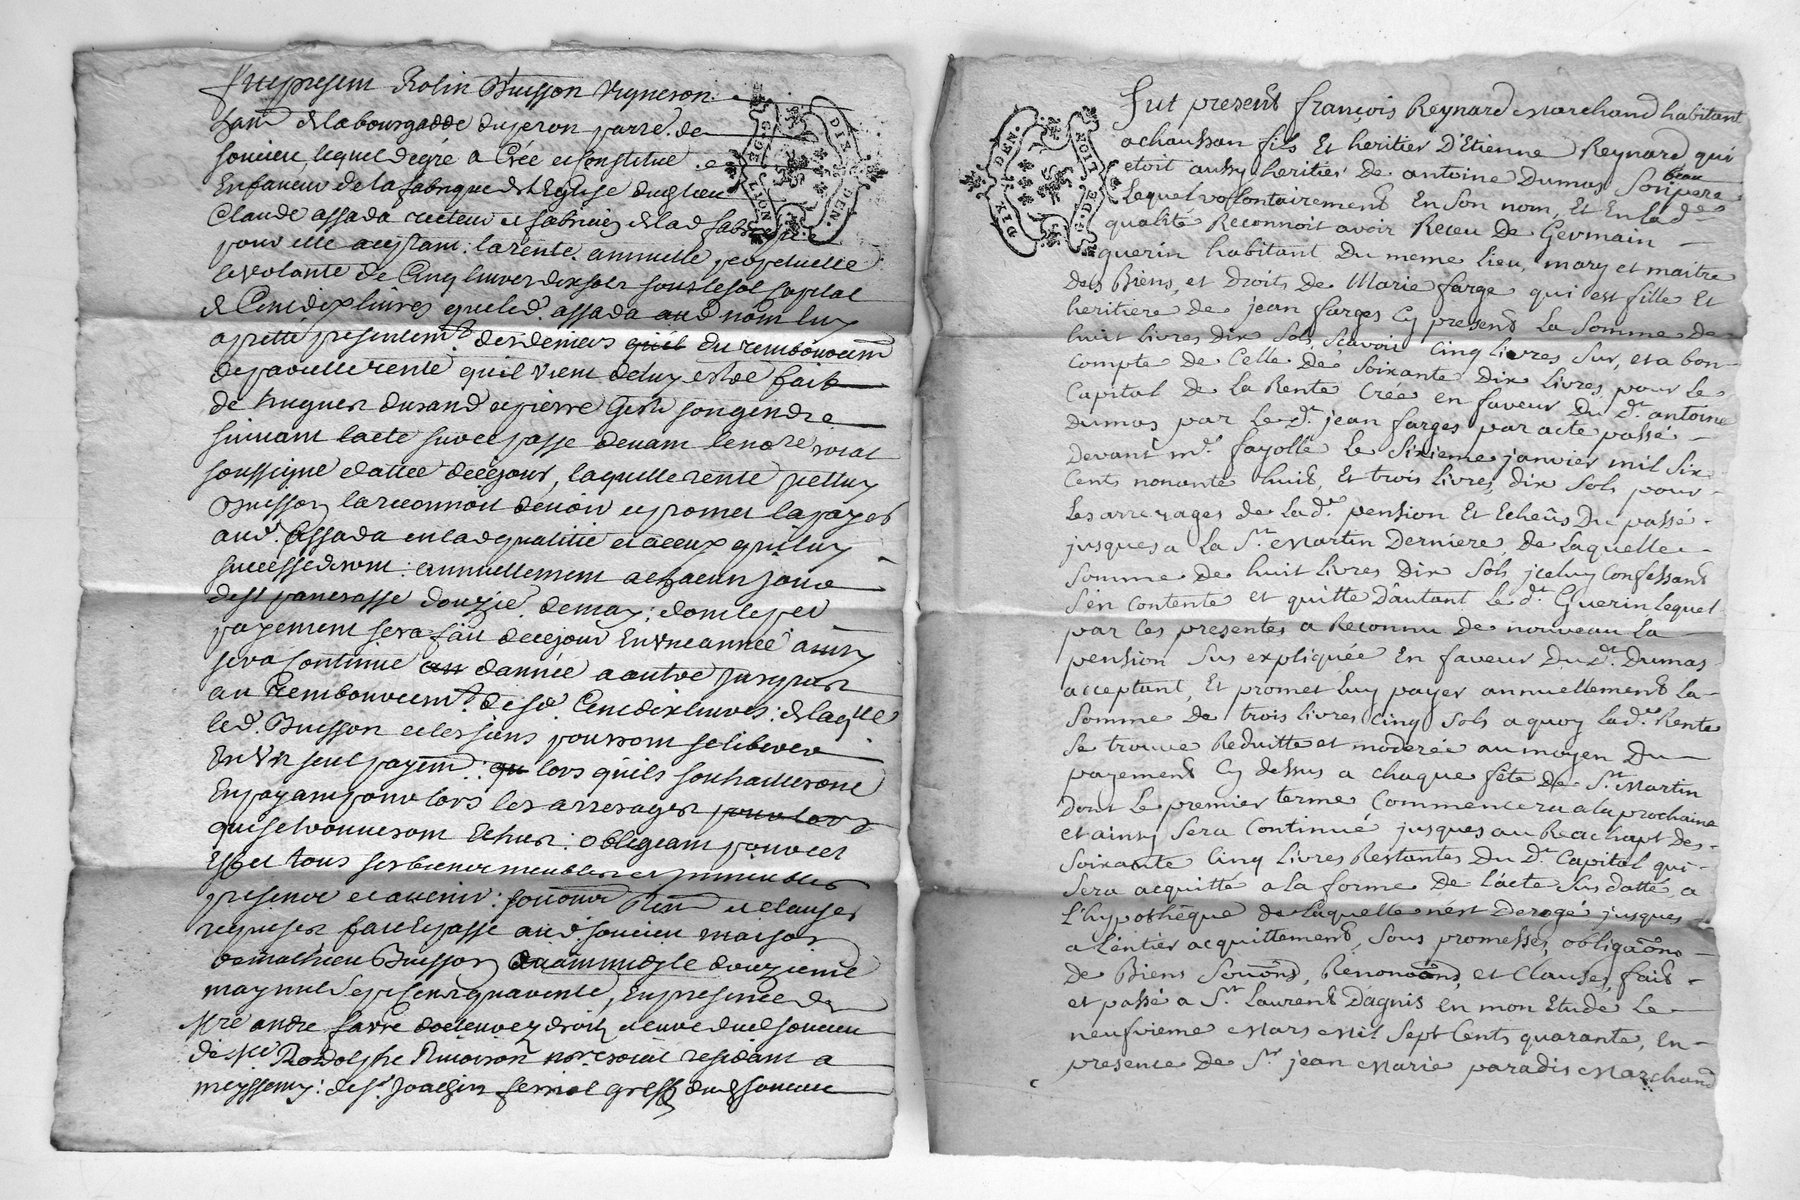 Fut present Robin Buisson vigneron
de la bourgadde du peron parr. de
soucieu, lequel de gré a Créé et constitué
En faveur de la fabrique de l'Eglise dud. lieu
Claude assada recteur et fabricien de lad. fabrique
pour elle aceptant: la rente annuelle perpetuelle
et volante de Cinq livres dix sols sous le sol capital
de Cent dix livres que led. assada aud. nom luy
a pretté presentemt. des deniers du remboursemt
de pareille rente qu'il vient de luy estre fait
de hugues durand et pierre son gendre
suivant l'acte sur ce passé devant le nore. roial
soussigné datté de cejour, laquelle rente jcelluy
Buisson la reconnoit devoir et promet la payer
aud. Assada en lad. qualitté et a ceux qui luy
succesederont: annuellement a chacun jour
de St pancrasse douzie. de may: dont le per
payement sera fait de cejour En Une année ainsy
sera continué d'année a autre jusques
au remboursemt. desd. Cent dix livres: de laqlle
led. Buisson et les siens pourront se liberer
En Un seul payemt: lors qu'ils souhaitteront
En payant pour lors les arrerages
qui se trouveront Echus: obligeant pour cet
Effet tous ses biens meubles et immeubles
presents et avenir: et clauses
requises fait et passé aud. soucieu maison
de mathieu Buisson le douzieme
may mil sept cent quarente, En presence de
Mre andre favre droits et curé dud. soucieu
de Me Rodolphe nore. roial residant a
messimy: de Sr. Joachin ferriol greff. dud. soucieu
Fut present françois Reynard Marchand habitant
a chaussan fils Et heritier D'Etienne Reynard qui
etoit aussy heritier de antoine Dumas Son beau pere
Lequel volontairement En Son nom, Et En lad.
qualité Reconnoit avoir Receu De Germain
guerin habitant Du meme lieu, mary et maitre
Des Biens, et Droits De Marie farge qui est fille Et
heritiere de jean farges Cy present La Somme De
huit livres dix Sols, Scavoir Cinq livres Sur, et a bon
Compte de Celle de Soixante Dix livres pour Le
Capital de la Rente Créé en faveur Du dt. antoine
Dumas par Le dt. jean farges par acte passé
Devant mr. fayolle Le Sixieme janvier mil Six
Cents nonante huit, Et trois livres dix Sols pour
Les arreyages de Lad. pension Et Echeûs Du passé
jusques a La St. Martin Derniere, de Laquelle
Somme de huit livres Dix Sols jceluy Confessant
S'en Contente et quitte D'autant Le dt. Guerin Lequel
par Ces presentes a Reconnu De nouveau La
pension Sus expliquée En faveur Du dt. Dumas
acceptant, Et promet Luy payer annuellement La
Somme De trois livres Cinq Sols a quoy lad. Rente
Se trouve Reduitte et moderée au moyen Du
payement Cy dessus a chaque fête de St. Martin
Dont Le premier terme Commencera a la prochaine
et ainsy Sera Continué jusques au Reachapt Des
Soixante Cinq livres Restantes Du dt. Capital qui
Sera acquitté a la forme De l'acte Sus datté, a
L'hypothêque de Laquelle n'est Derogé jusques
a l'entier acquittement, Sous promesses, obliga͞ons
De Biens Soum͞ons, Renon͞ons, et Clauses, fait
et passé a St. Laurent D'agnis en mon Etude Le
neufvieme Mars Mil Sept Cents quarante En
presence De Sr. jean Marie paradis Marchand